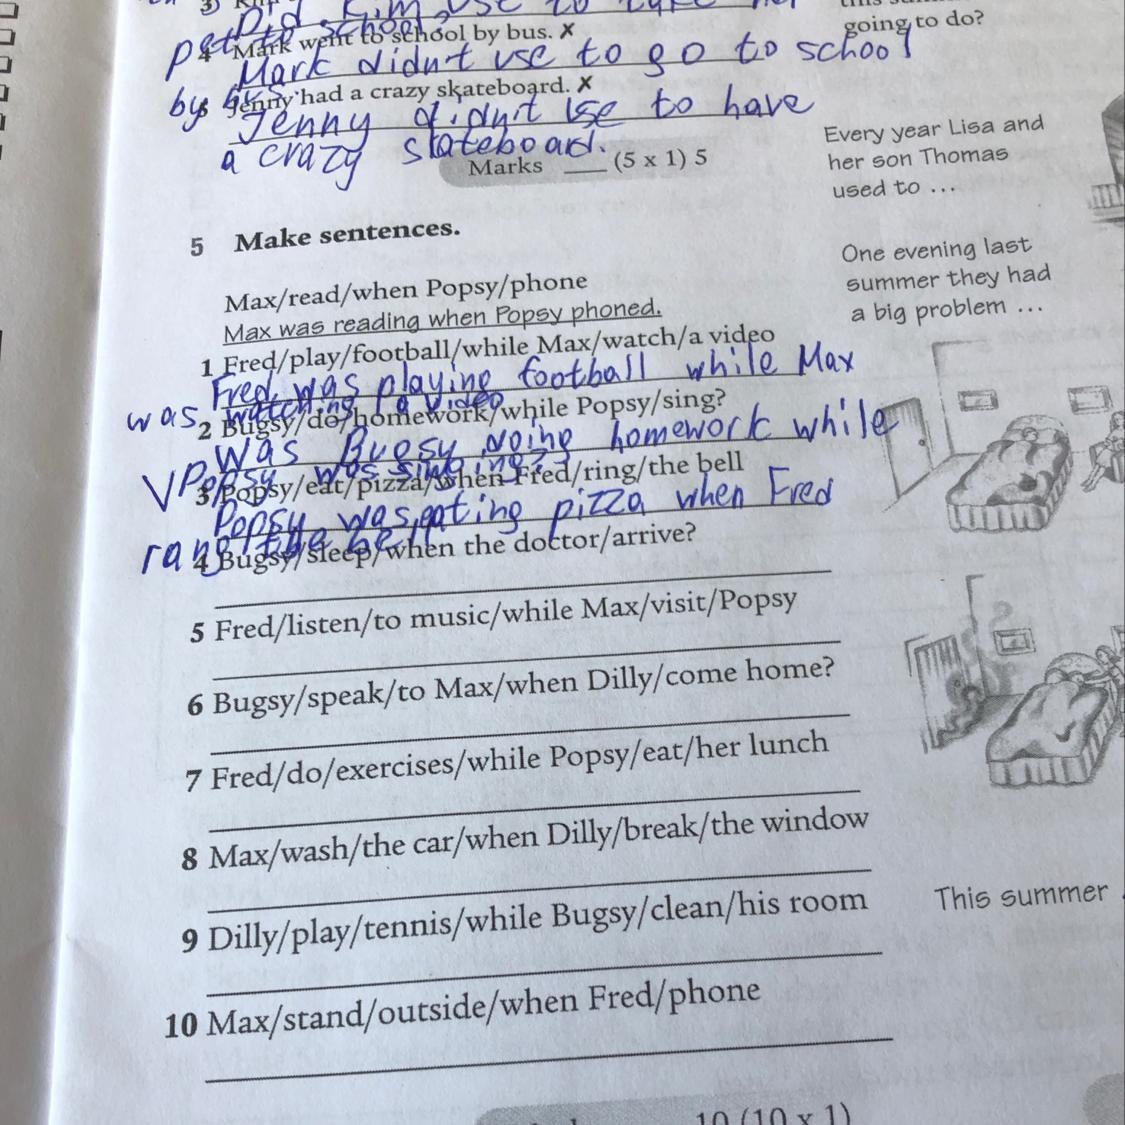 Did Kim use to take her
pet to school,
this su
going to do?
4 Mark went to school by bus. ✗
Mark didn't use to go to school
by bus.
5 Jenny had a crazy skateboard. ✗
Jenny didn't use to have
a crazy skateboard.
Marks ___ (5 x 1) 5
5 Make sentences.
Max/read/when Popsy/phone
Max was reading when Popsy phoned.
1 Fred/play/football/while Max/watch/a video
Fred was playing football while Max
was watching a video
2 Bugsy/do/homework/while Popsy/sing?
Was Bugsy doing homework while
Popsy was singing?
3 Popsy/eat/pizza/when Fred/ring/the bell
Popsy was eating pizza when Fred
rang the bell
4 Bugsy/sleep/when the doctor/arrive?
5 Fred/listen/to music/while Max/visit/Popsy
6 Bugsy/speak/to Max/when Dilly/come home?
7 Fred/do/exercises/while Popsy/eat/her lunch
8 Max/wash/the car/when Dilly/break/the window
9 Dilly/play/tennis/while Bugsy/clean/his room
10 Max/stand/outside/when Fred/phone
10 (10 x 1)
Every year Lisa and
her son Thomas
used to ...
One evening last
summer they had
a big problem ...
This summer